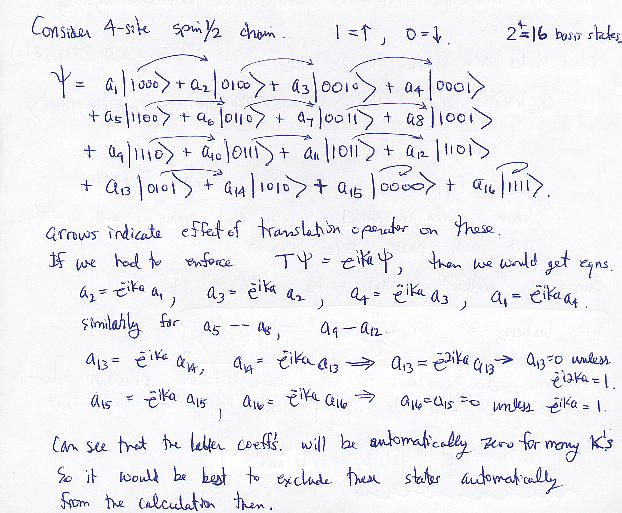 Consider 4-site spin 1/2 chain. 1=↑, 0=↓. 2⁴=16 basis states
Ψ = a₁|1000> + a₂|0100> + a₃|0010> + a₄|0001>
+ a₅|1100> + a₆|0110> + a₇|0011> + a₈|1001>
+ a₉|1110> + a₁₀|0111> + a₁₁|1011> + a₁₂|1101>
+ a₁₃|0101> + a₁₄|1010> + a₁₅|0000> + a₁₆|1111>.
arrows indicate effect of translation operator on these.
If we had to enforce TΨ = e^{ika}Ψ, then we would get eqns.
a₂ = e^{-ika} a₁, a₃ = e^{-ika} a₂, a₄ = e^{-ika} a₃, a₁ = e^{-ika} a₄.
similarly for a₅ -- a₈, a₉ – a₁₂.
a₁₃ = e^{-ika} a₁₄, a₁₄ = e^{-ika} a₁₃ ⇒ a₁₃ = e^{-2ika} a₁₃ → a₁₃=0 unless e^{-i2ka} = 1.
a₁₅ = e^{-ika} a₁₅, a₁₆ = e^{-ika} a₁₆ ⇒ a₁₆=a₁₅=0 unless e^{-ika} = 1.
Can see that the latter coeffs. will be automatically zero for many K's
So it would be best to exclude these states automatically
from the calculation then.